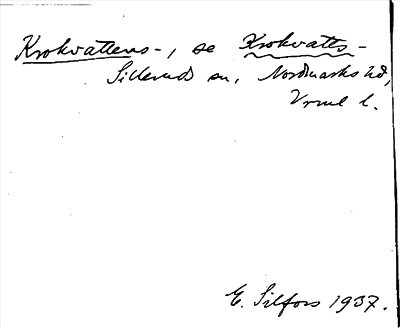 Krokvattens-, se Krokvatts-
Sillerud sn, Nordmarks hd,
Vrml l.
E. Silfors 1937.